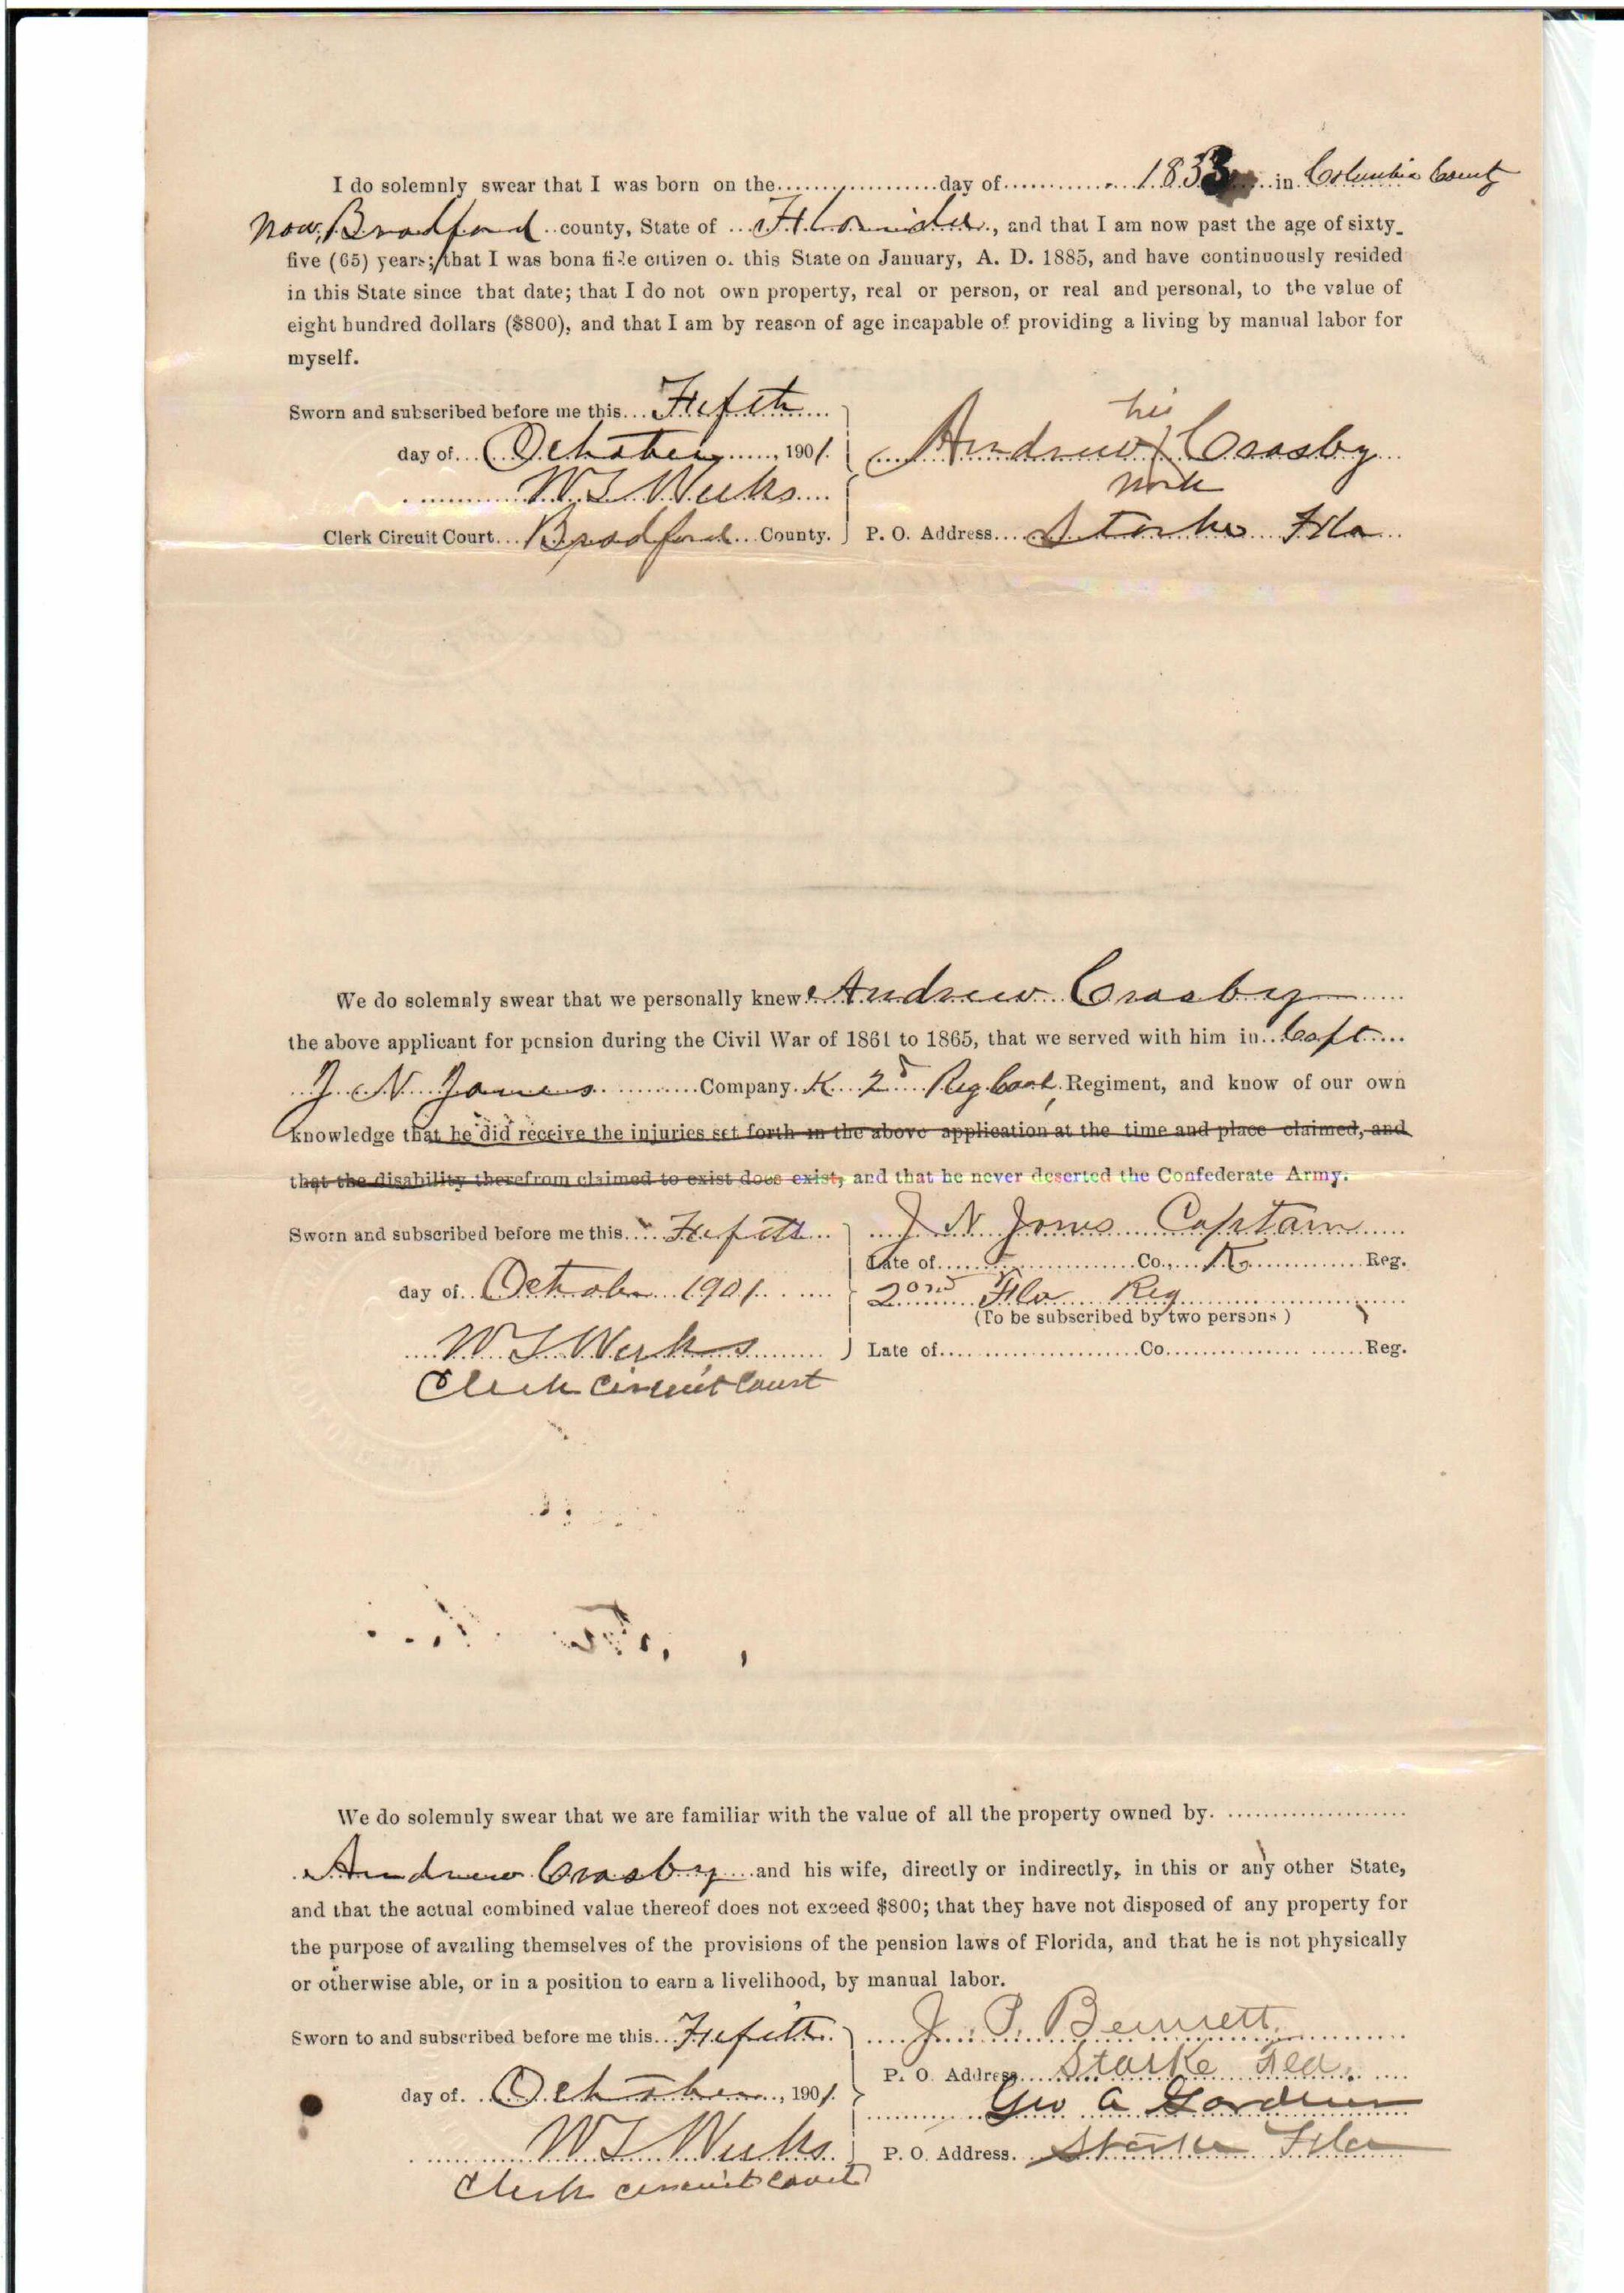 I do solemnly swear that I was born on the .................. day of ............ 1833 ..... in Columbia County
now, Bradford county, State of Florida, and that I am now past the age of sixty-
five (65) years; that I was bona fide citizen of this State on January, A. D. 1885, and have continuously resided
in this State since that date; that I do not own property, real or person, or real and personal, to the value of
eight hundred dollars ($800), and that I am by reason of age incapable of providing a living by manual labor for
myself.
Sworn and subscribed before me this Fifeth
his
day of October, 1901. Andrew X Crosby
W I Weeks mark
Clerk Circuit Court Bradford County. P. O. Address Starke Fla
We do solemnly swear that we personally knew Andrew Crosby
the above applicant for pension during the Civil War of 1861 to 1865, that we served with him in Capt
J. N. Jones Company K 2d Reg Regiment, and know of our own
knowledge that he did receive the injuries set forth in the above application at the time and place claimed, and
that the disability therefrom claimed to exist does exist, and that he never deserted the Confederate Army.
Sworn and subscribed before me this Fifeth J N Jones Captain
Late of Co., K Reg.
day of October 1901 2ond Fla Reg
(To be subscribed by two persons)
W I Weeks Late of Co. Reg.
Clerk circuit Court
We do solemnly swear that we are familiar with the value of all the property owned by
Andrew Crosby and his wife, directly or indirectly, in this or any other State,
and that the actual combined value thereof does not exceed $800; that they have not disposed of any property for
the purpose of availing themselves of the provisions of the pension laws of Florida, and that he is not physically
or otherwise able, or in a position to earn a livelihood, by manual labor.
Sworn to and subscribed before me this Fifeth J. P. Bennett
P. O. Address Starke Fla.
day of October, 1901. Geo A Gardner
W I Weeks P. O. Address. Starke Fla
Clerk circuit court